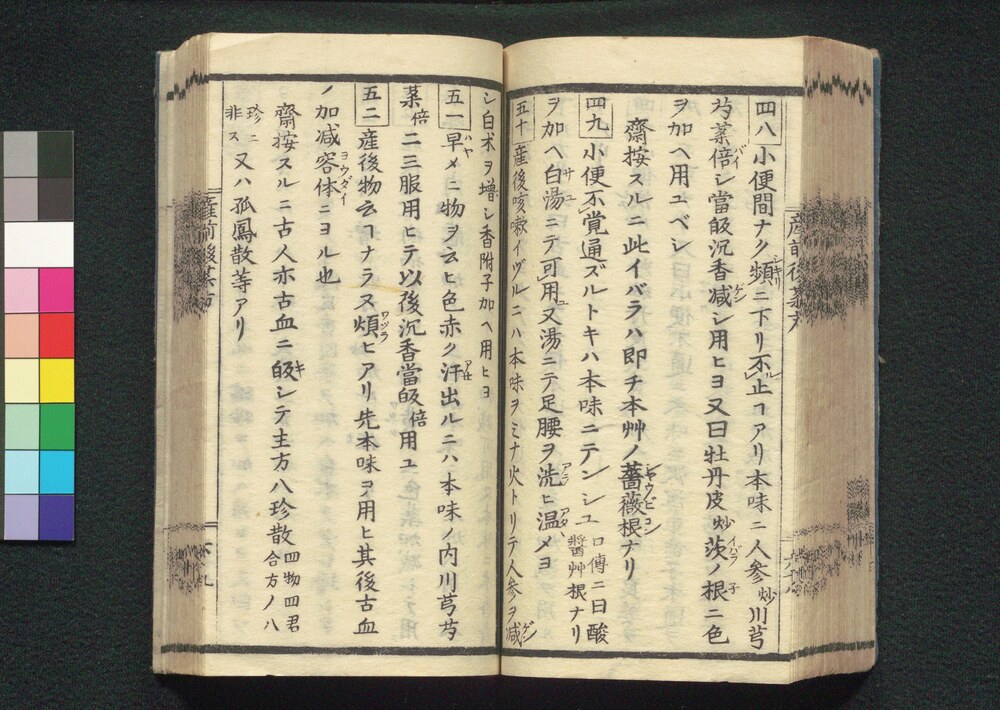 四八 小便間ナク頻シキリニ下リ不レ止ヿアリ本味ニ人参炒川芎
芍薬倍バイシ當皈沉香减ゲンシ用ヒヨ又曰牡丹皮炒茨イバラノ根子ニ色
ヲ加ヘ用ユベシ
齋按スルニ此イバラハ即チ本艸ノ薔薇根シヤウノビコンナリ
四九 小便不覚通ズルトキハ本味ニテンシユ口傳ニ曰酸醬艸根ナリ
ヲ加ヘ白湯サユニテ可レ用ユ又湯ニテ足腰ヲ洗アラヒ温アタヽメヨ
五十 産後咳嗽イヅルニハ本味ヲミナ火トリテ人参ヲ减ゲン
シ白朮ヲ増シ香附子加ヘ用ヒヨ
五一 早ハヤメニ物ヲ云ヒ色赤ク汗アセ出ルニハ本味ノ内川芎芍
薬倍二三服用ヒテ以後沉香當皈倍用ユ
五二 産後物云ヿナラヌ煩ワヅラヒアリ先本味ヲ用ヒ其後古血
ノ加减容体ヨウダイニヨル也
齋按スルニ古人亦古血ニ皈キシテ主方八珍散四物四君合方ノ八
珍ニ非ス又ハ孤鳳散等アリ
産前後